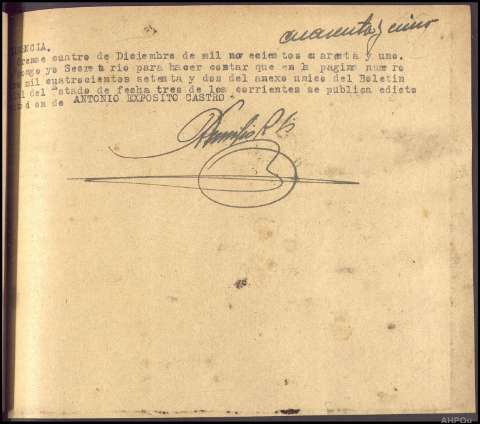 cuarenta y cinco
ENCIA.
Orense cuatro de Diciembre de mil novecientos cuarenta y uno.
pongo yo Secretario para hacer constar que en la pagina numero
mil cuatrocientos setenta y dos del anexo unico del Boletin
al del Estado de fecha tres de los corrientes se publica edicto
de ANTONIO EXPOSITO CASTRO
AHPOu